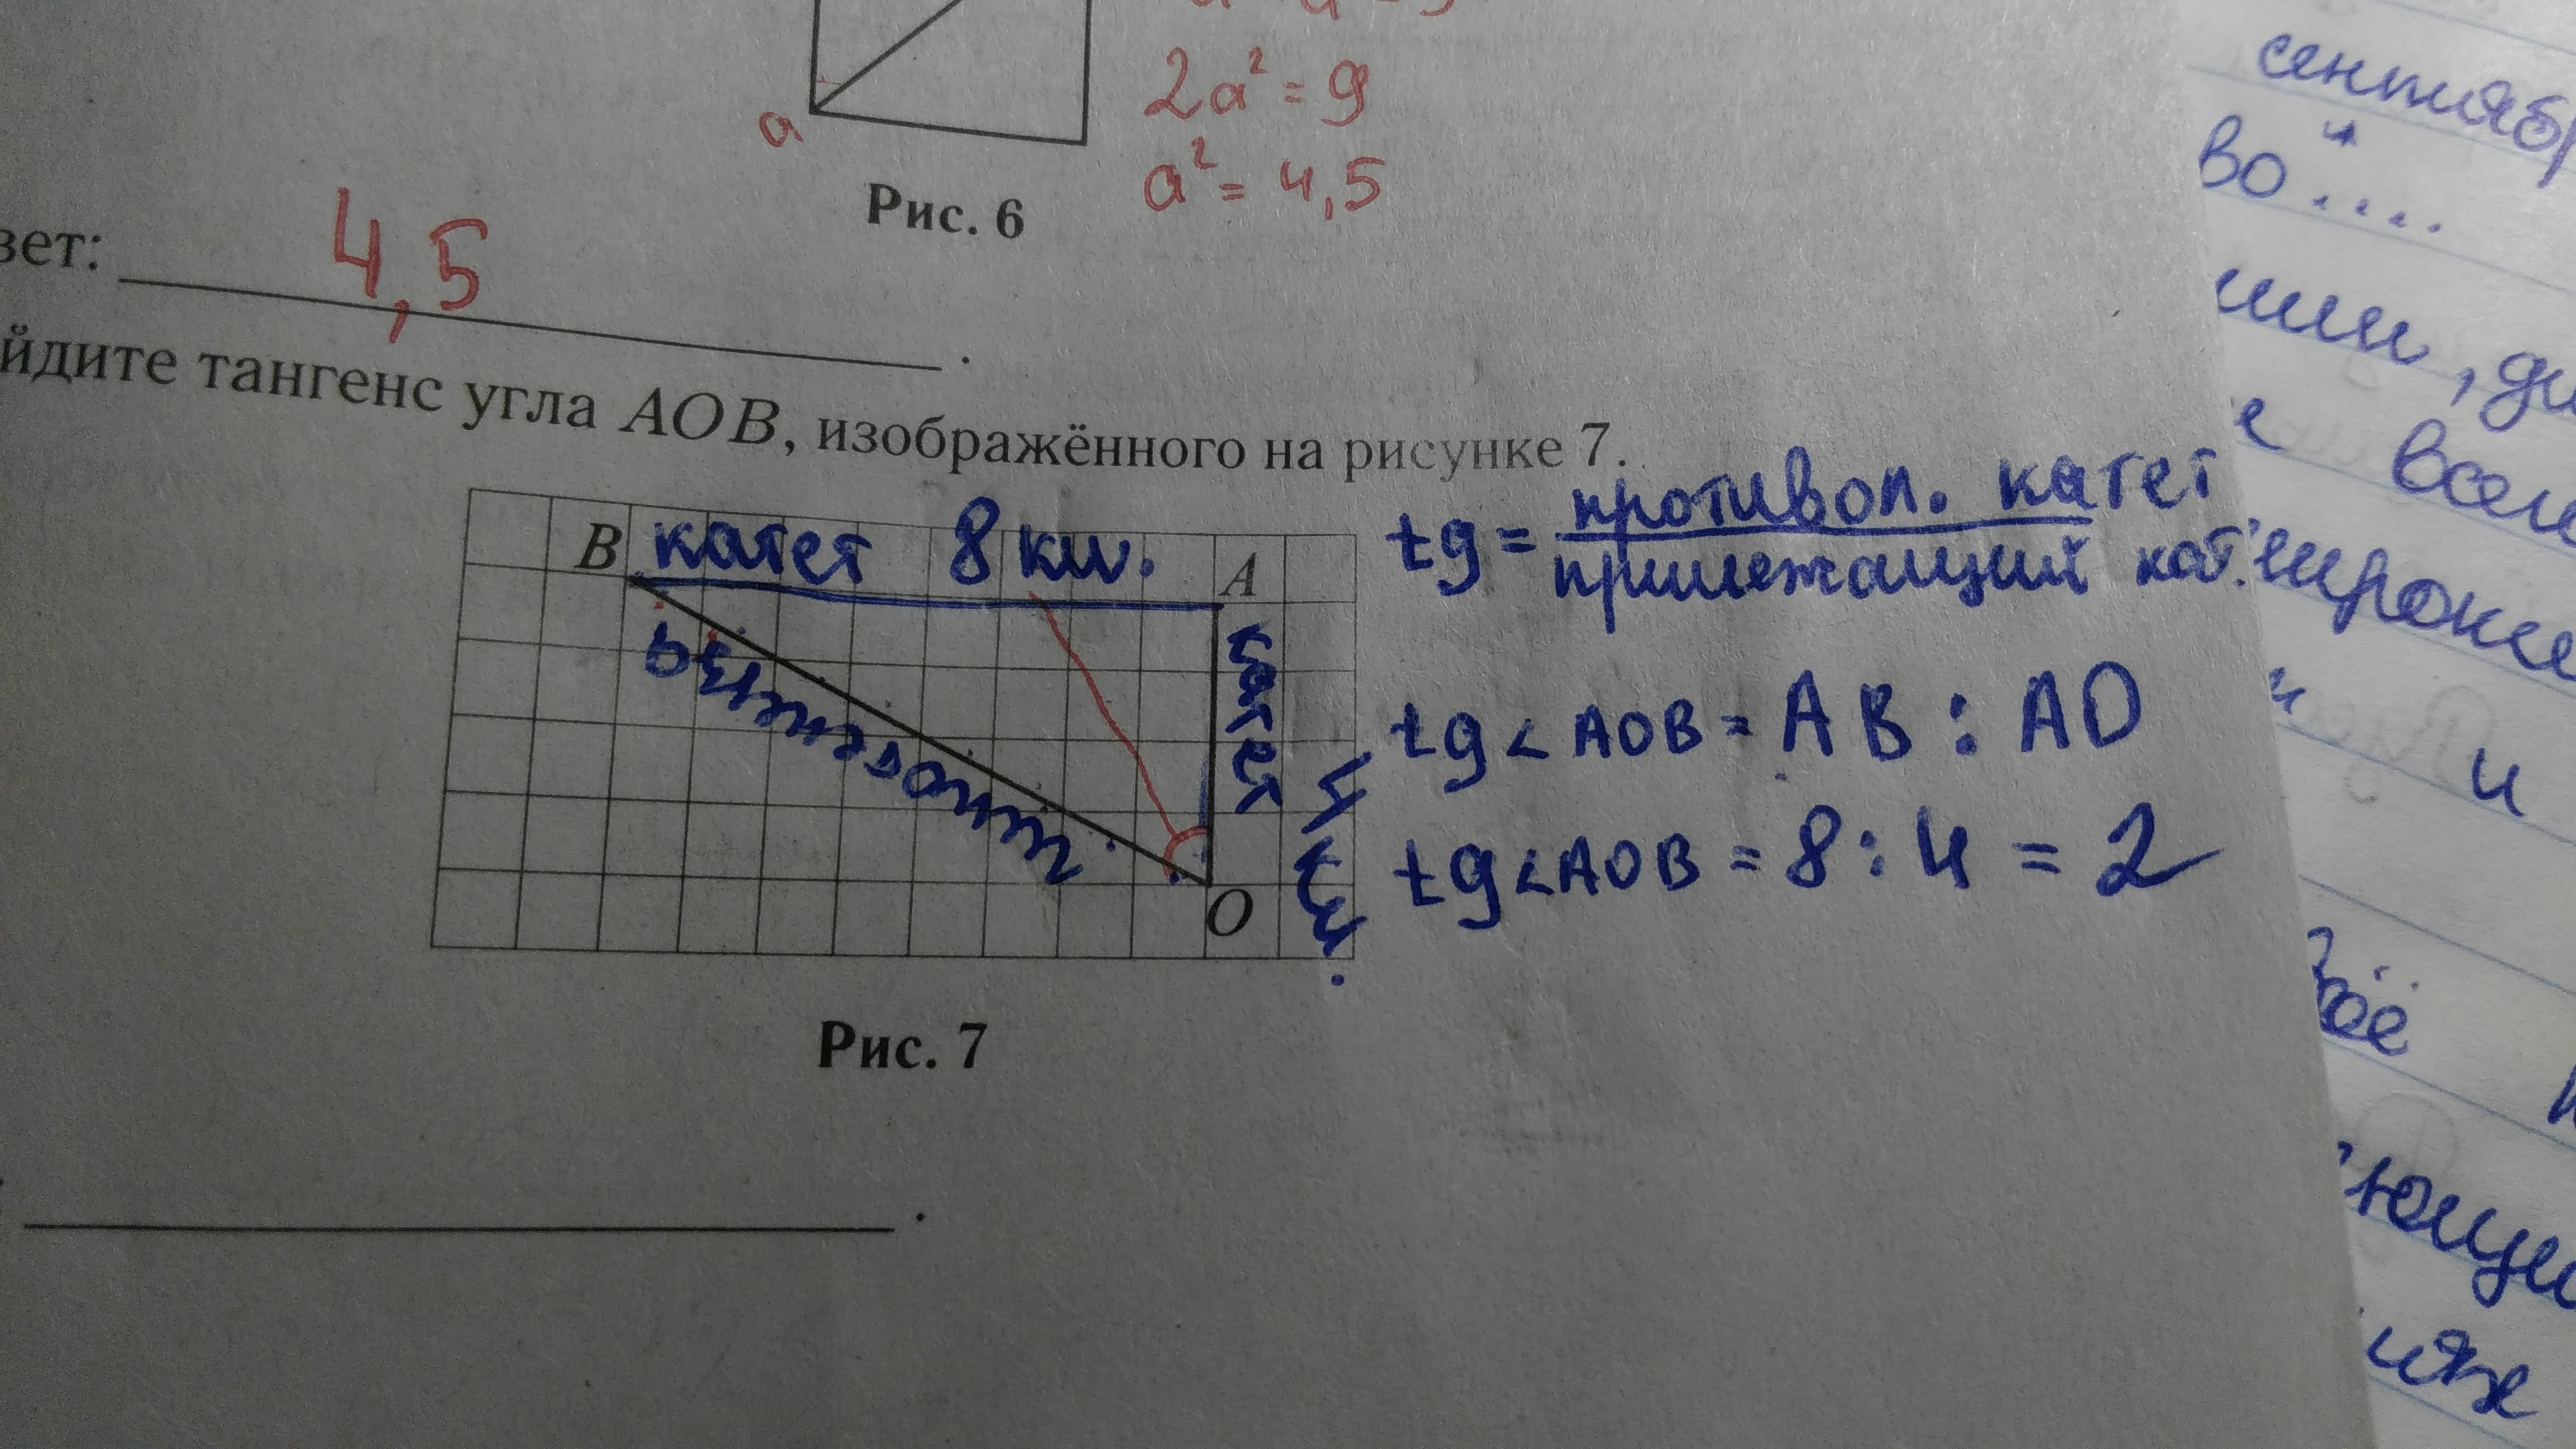 2a² = 9
a
a² = 4,5
Рис. 6
вет: 4,5 .
йдите тангенс угла AOB, изображённого на рисунке 7.
B катет 8 кл. A
гипотенуза
катет
4 кл.
O
tg = противоп. катет
прилежащий кат.
tg ∠ AOB = AB : AO
tg ∠ AOB = 8 : 4 = 2
Рис. 7
.
сентяб
во
и